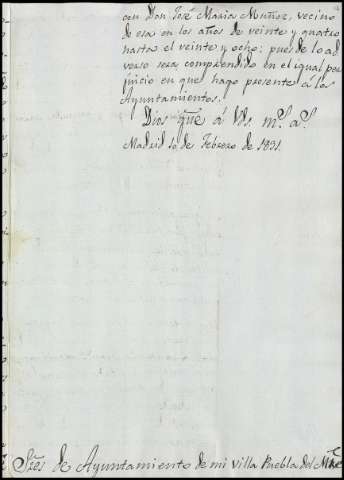 con Don José Maria Muñoz, vecino
de esa en los años de veinte y quatro
hasta el veinte y ocho: pues de lo ad
verso sera comprendido en el igual per
juicio en que hago presente á los
Ayuntamientos.
Dios gũe á Vds. ms. as.
Madrid 10 de Febrero de 1831.
Sres. de Ayuntamiento de mi villa Puebla del